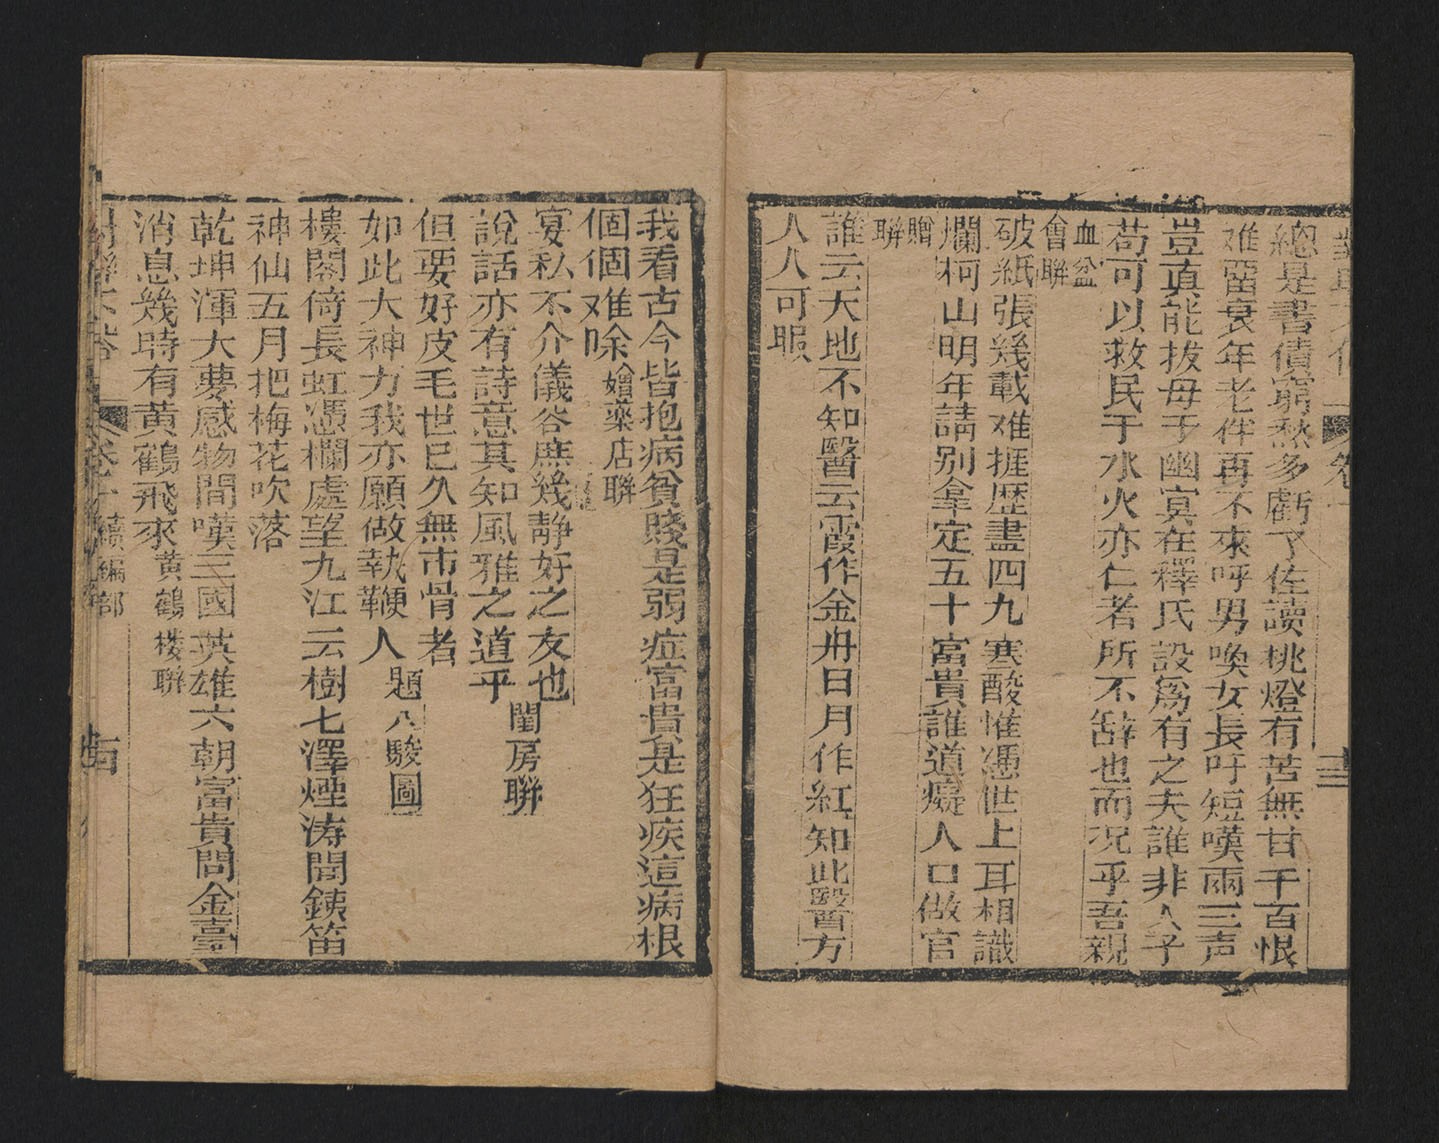 總是書債窮愁多虧了佐讀桃燈有苦無甘千百恨
难畱衰年老伴再不來呼男喚女長吁短嘆兩三声
豈直能拔母于幽冥在釋氏設爲有之夫誰非人子
苟可以救民于水火亦仁者所不辞也而况乎吾親
血盆會聯
破紙張幾載难捱歷盡四九寒酸惟憑世上耳相識
爛柯山明年請别拿定五十富貴誰道癡人口做官
贈聯
誰云天地不知醫云霞作金丹日月作紅知此醫方
人人可暇
我看古今皆抱病貧賤是弱症富貴是狂疾這病根
個個难除 嬆藥店聯
宴私不介儀容庶幾靜好之友也
說話亦有詩意其知風雅之道乎 閨房聯
但要好皮毛世已久無市骨者
如此大神力我亦願做執鞭人 題八駿圖
樓閣倚長虹憑欄處望九江云樹七澤煙涛聞鉄笛
神仙五月把梅花吹落
乾坤渾大夢感物間嘆三國英雄六朝富貴問金臺
消息幾時有黄鶴飛來 黄鶴楼聨
卷一 續編部